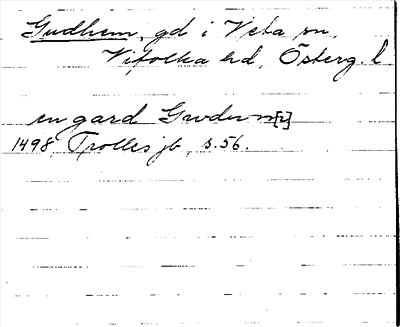 Gudhem, gd i Veta sn,
Vifolka hd, Österg. l
en gard Gwdem[e]
1498, Trolles jb, s. 56.